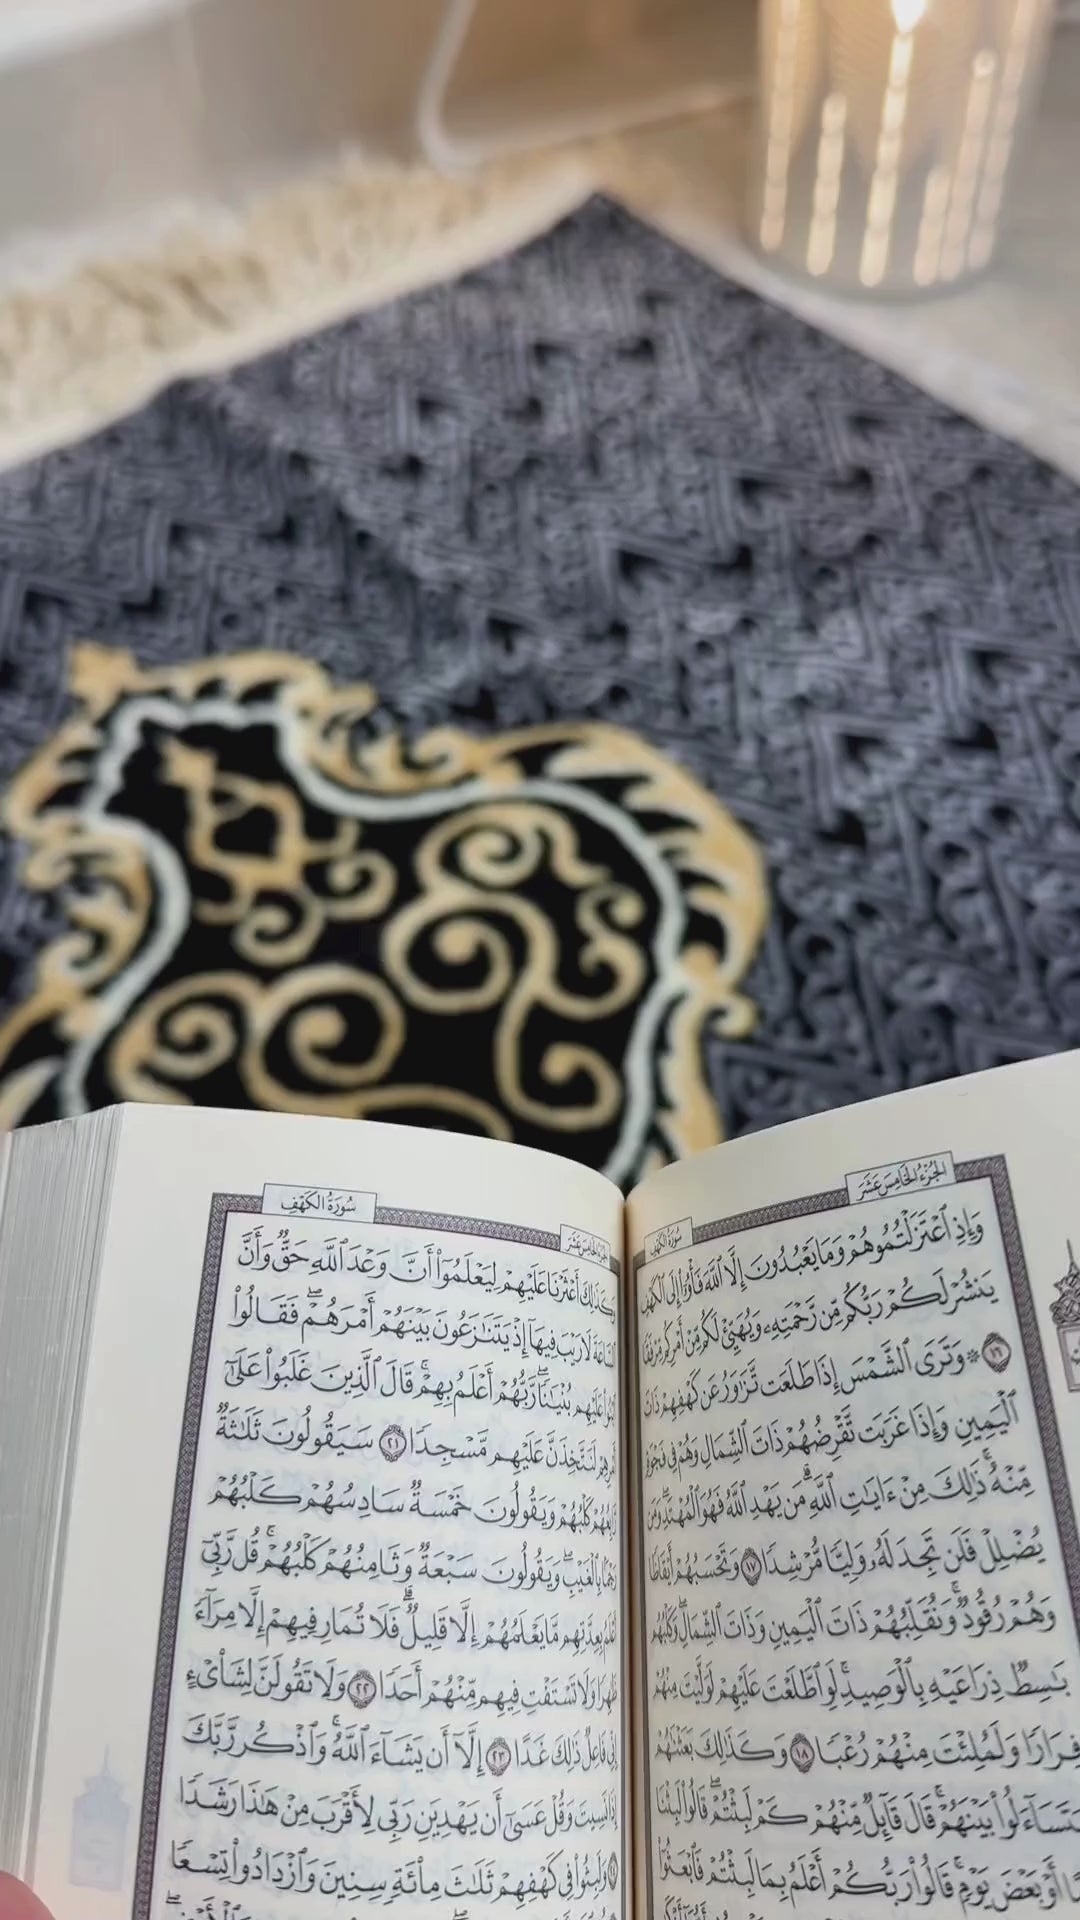 الجزء الخامس عشر
سورة الكهف
وَإِذِ ٱعْتَزَلْتُمُوهُمْ وَمَا يَعْبُدُونَ إِلَّا ٱللَّهَ فَأْوُۥٓا۟ إِلَى ٱلْكَهْفِ
يَنشُرْ لَكُمْ رَبُّكُم مِّن رَّحْمَتِهِۦ وَيُهَيِّئْ لَكُم مِّنْ أَمْرِكُم مِّرْفَقًا
١٦ ۞ وَتَرَى ٱلشَّمْسَ إِذَا طَلَعَت تَّزَٰوَرُ عَن كَهْفِهِمْ ذَاتَ
ٱلْيَمِينِ وَإِذَا غَرَبَت تَّقْرِضُهُمْ ذَاتَ ٱلشِّمَالِ وَهُمْ فِى فَجْوَةٍ
مِّنْهُ ۚ ذَٰلِكَ مِنْ ءَايَٰتِ ٱللَّهِ ۗ مَن يَهْدِ ٱللَّهُ فَهُوَ ٱلْمُهْتَدِ ۖ وَمَن
يُضْلِلْ فَلَن تَجِدَ لَهُۥ وَلِيًّا مُّرْشِدًا ١٧ وَتَحْسَبُهُمْ أَيْقَاظًا
وَهُمْ رُقُودٌ ۚ وَنُقَلِّبُهُمْ ذَاتَ ٱلْيَمِينِ وَذَاتَ ٱلشِّمَالِ ۖ وَكَلْبُهُم
بَٰسِطٌ ذِرَاعَيْهِ بِٱلْوَصِيدِ ۚ لَوِ ٱطَّلَعْتَ عَلَيْهِمْ لَوَلَّيْتَ مِنْهُمْ
فِرَارًا وَلَمُلِئْتَ مِنْهُمْ رُعْبًا ١٨ وَكَذَٰلِكَ بَعَثْنَٰهُمْ
لِيَتَسَآءَلُوا۟ بَيْنَهُمْ ۚ قَالَ قَآئِلٌ مِّنْهُمْ كَمْ لَبِثْتُمْ ۖ قَالُوا۟ لَبِثْنَا
يَوْمًا أَوْ بَعْضَ يَوْمٍ ۚ قَالُوا۟ رَبُّكُمْ أَعْلَمُ بِمَا لَبِثْتُمْ فَٱبْعَثُوٓا۟
الجزء الخامس عشر
سورة الكهف
وَكَذَٰلِكَ أَعْثَرْنَا عَلَيْهِمْ لِيَعْلَمُوٓا۟ أَنَّ وَعْدَ ٱللَّهِ حَقٌّ وَأَنَّ
ٱلسَّاعَةَ لَا رَيْبَ فِيهَآ إِذْ يَتَنَٰزَعُونَ بَيْنَهُمْ أَمْرَهُمْ ۖ فَقَالُوا۟
ٱبْنُوا۟ عَلَيْهِم بُنْيَٰنًا ۖ رَّبُّهُمْ أَعْلَمُ بِهِمْ ۚ قَالَ ٱلَّذِينَ غَلَبُوا۟ عَلَىٰٓ
أَمْرِهِمْ لَنَتَّخِذَنَّ عَلَيْهِم مَّسْجِدًا ٢١ سَيَقُولُونَ ثَلَٰثَةٌ
رَّابِعُهُمْ كَلْبُهُمْ وَيَقُولُونَ خَمْسَةٌ سَادِسُهُمْ كَلْبُهُمْ
رَجْمًۢا بِٱلْغَيْبِ ۖ وَيَقُولُونَ سَبْعَةٌ وَثَامِنُهُمْ كَلْبُهُمْ ۚ قُل رَّبِّىٓ
أَعْلَمُ بِعِدَّتِهِم مَّا يَعْلَمُهُمْ إِلَّا قَلِيلٌ ۗ فَلَا تُمَارِ فِيهِمْ إِلَّا مِرَآءً
ظَٰهِرًا وَلَا تَسْتَفْتِ فِيهِم مِّنْهُمْ أَحَدًا ٢٢ وَلَا تَقُولَنَّ لِشَا۟ىْءٍ
إِنِّى فَاعِلٌ ذَٰلِكَ غَدًا ٢٣ إِلَّآ أَن يَشَآءَ ٱللَّهُ ۚ وَٱذْكُر رَّبَّكَ
إِذَا نَسِيتَ وَقُلْ عَسَىٰٓ أَن يَهْدِيَنِ رَبِّى لِأَقْرَبَ مِنْ هَٰذَا رَشَدًا
٢٤ وَلَبِثُوا۟ فِى كَهْفِهِمْ ثَلَٰثَ مِا۟ئَةٍ سِنِينَ وَٱزْدَادُوا۟ تِسْعًا